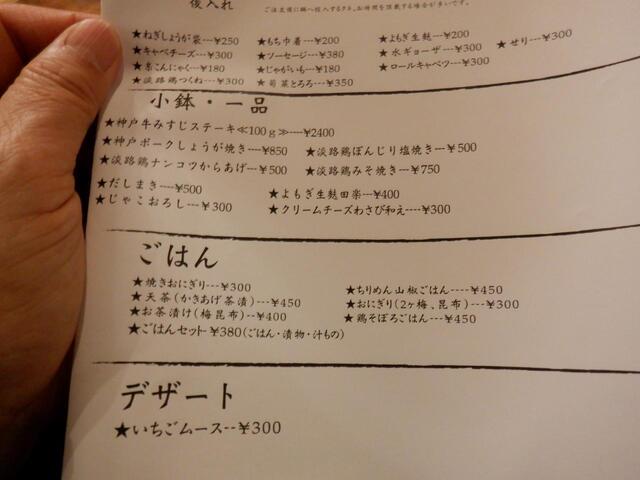 後入れ
ご注文後に鍋へ投入する為、お時間を頂戴する場合が多いです。
★ねぎしょうが袋---¥250 ★もち巾着---¥200 ★よもぎ生麩---¥200
★キャベチーズ---¥300 ★ソーセージ---¥380 ★水ギョーザ---¥300 ★せり---¥300
★糸こんにゃく---¥180 ★じゃがいも---¥180 ★ロールキャベツ---¥300
★淡路鶏つくね---¥300 ★菊菜とろろ---¥350
小鉢・一品
★神戸牛みすじステーキ≪100g≫----¥2400
★神戸ポークしょうが焼き---¥850 ★淡路鶏ぼんじり塩焼き---¥500
★淡路鶏ナンコツからあげ---¥500 ★淡路鶏みそ焼き---¥750
★だしまき---¥500 ★よもぎ生麩田楽---¥400
★じゃこおろし---¥300 ★クリームチーズわさび和え----¥300
ごはん
★焼きおにぎり---¥300 ★ちりめん山椒ごはん----¥450
★天茶(かきあげ茶漬)---¥450 ★おにぎり(2ヶ梅、昆布)---¥300
★お茶漬け(梅昆布)--¥400 ★鶏そぼろごはん---¥450
★ごはんセット-¥380(ごはん・漬物・汁もの)
デザート
★いちごムース--¥300